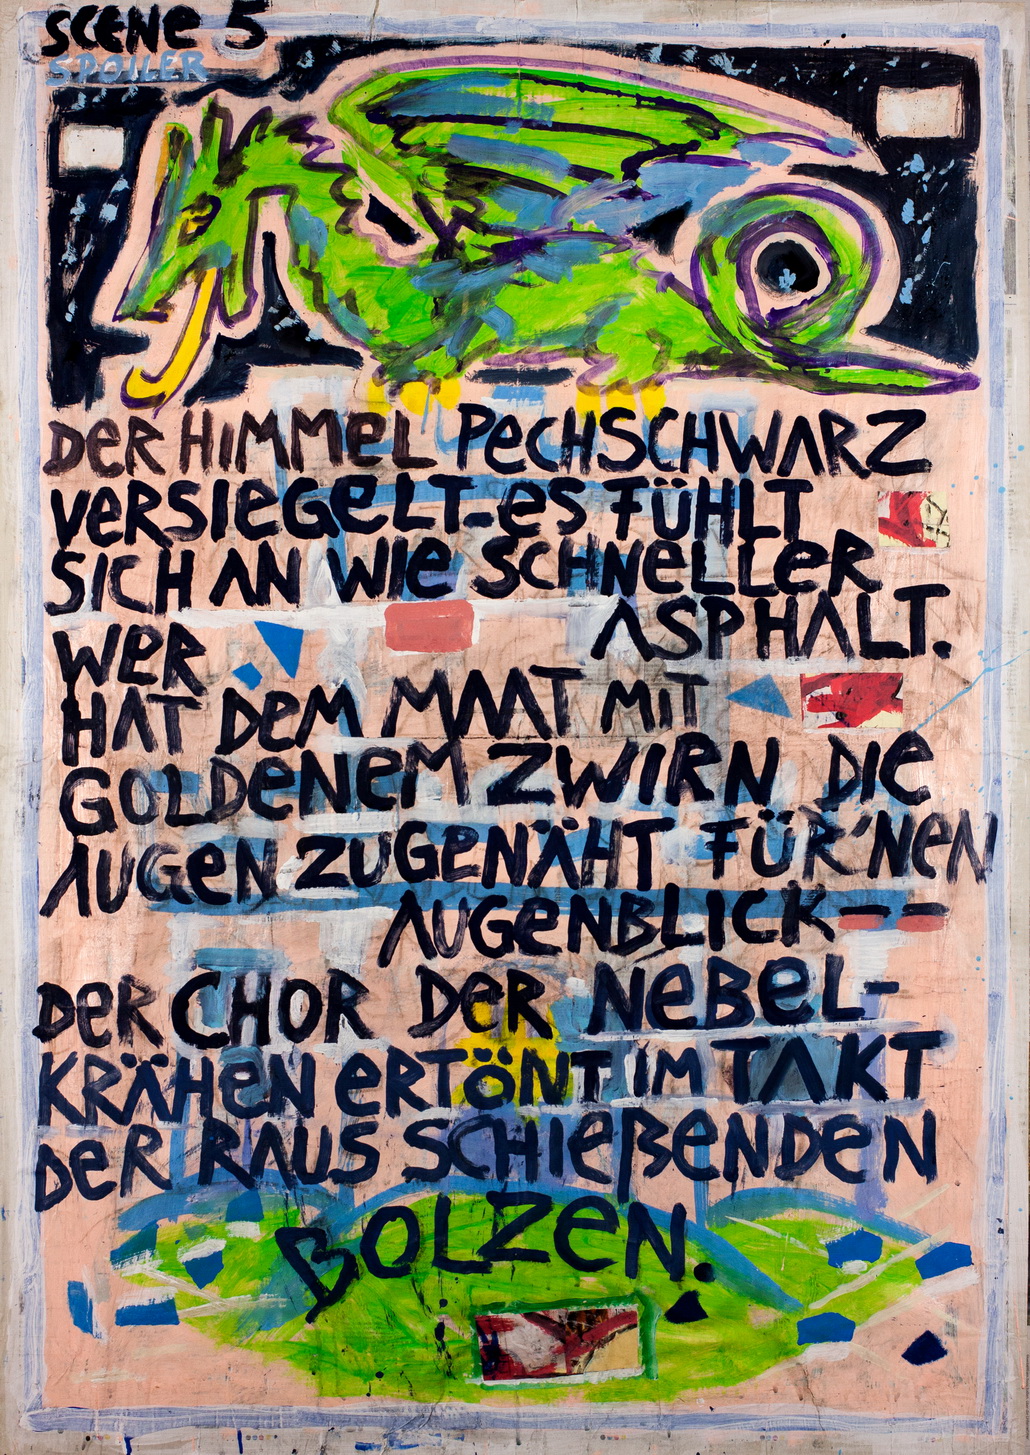 SCENE 5
SPOILER
DER HIMMEL PECHSCHWARZ
VERSIEGELT-ES FÜHLT
SICH AN WIE SCHNELLER
ASPHALT.
WER
HAT DEM MAAT MIT
GOLDENEM ZWIRN DIE
AUGEN ZUGENÄHT FÜR'NEN
AUGENBLICK--
DER CHOR DER NEBEL-
KRÄHEN ERTÖNT IM TAKT
DER RAUS SCHIEßENDEN
BOLZEN.